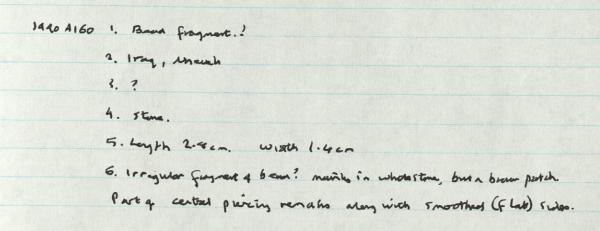 1. Bead fragment?
2. Iraq,
3. ?
4. Stone.
5. Length 2.4cm. width 1.4cm
6. Irregular fragment of bead? in stone, but a brown patch.
Part of central piercing remains along with smoothed (flat) sides.